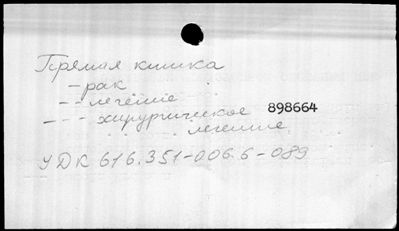 Прямая кишка
- рак
- - лечение
- - - хирургическое 898664
лечение
УДК 616.351-006.6-089